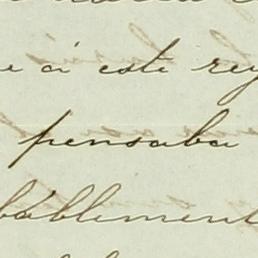 e á este rey
pensaba
bablement